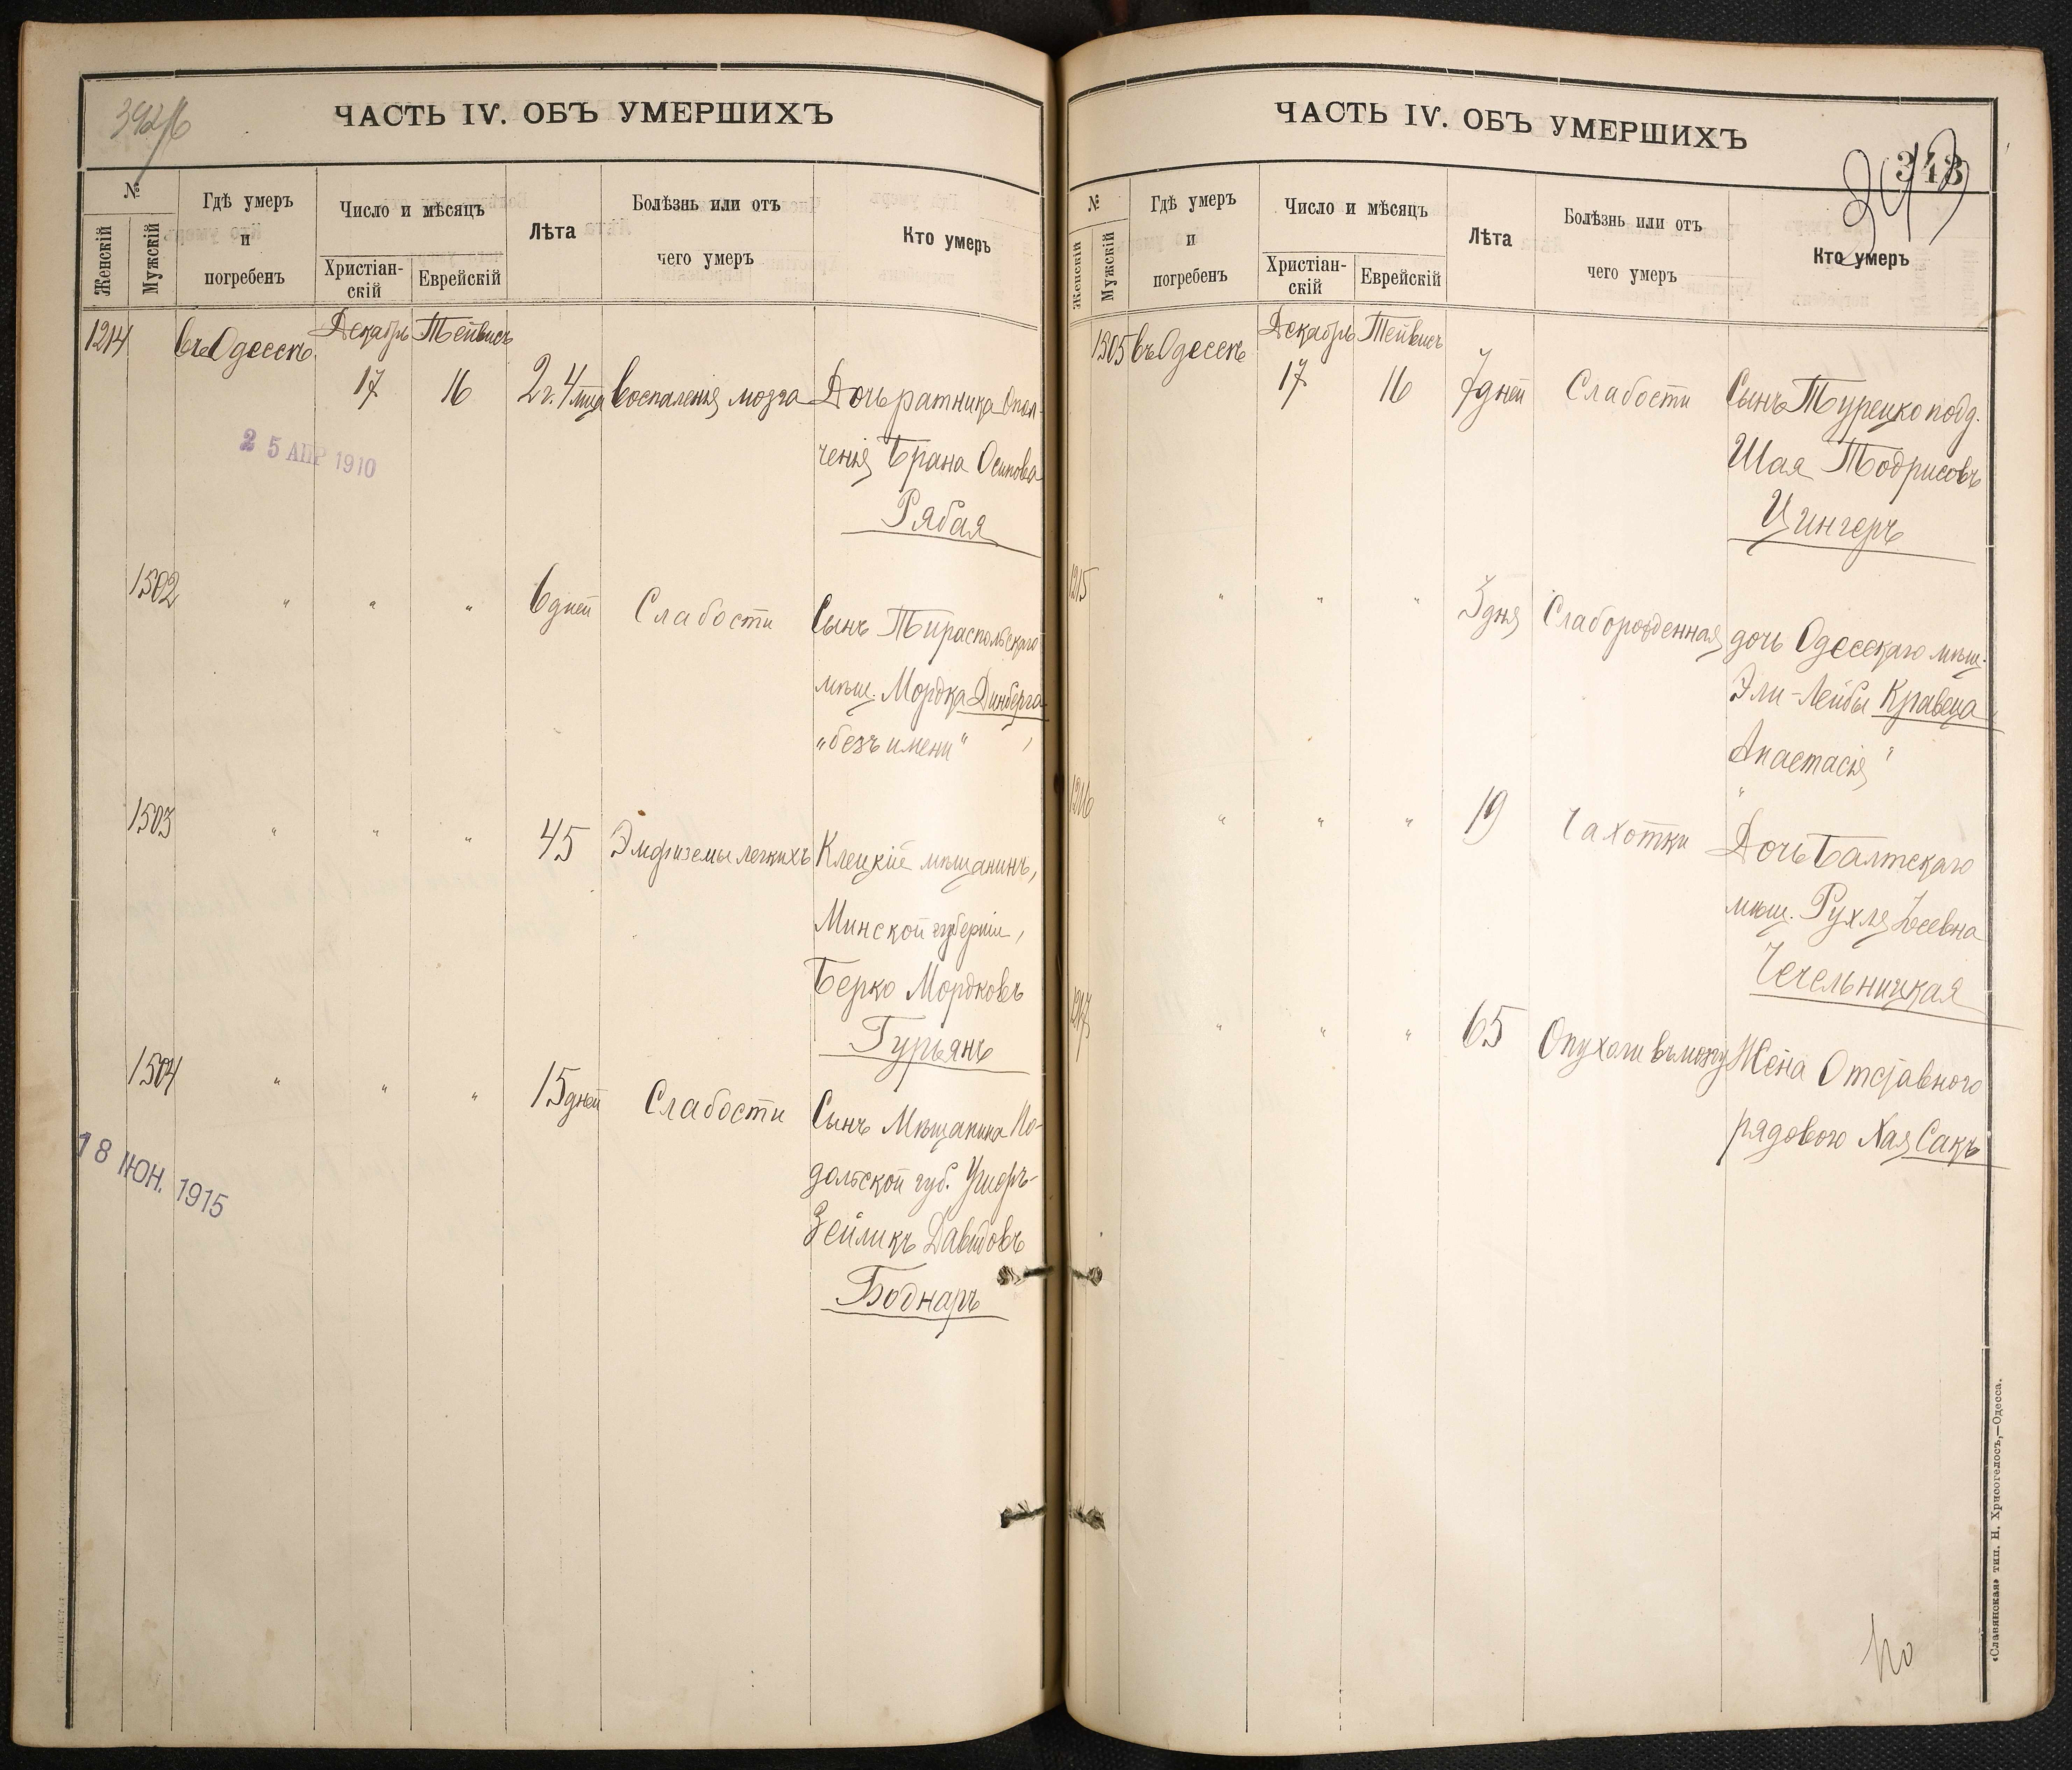 ЧАСТЬ IV. ОБЪ УМЕРШИХЪ
№
Женскій
Мужскій
Гдѣ умеръ
и
погребенъ
Число и мѣсяцъ
Христіан-
скій
Еврейскій
Лѣта
Болѣзнь или отъ
чего умеръ
Кто умеръ
1214 въ Одессѣ Декабрь Тейвисъ
17 16 2 г. 4 мц воспаленія мозга Дочь ратника Опол-
ченія Брана Осипова
Рябая
25 АПР 1910
1502 " " " 6 дней Слабости Сынъ Тираспольскаго
мѣщ. Мордка Динберга
„безъ имени"
1503 " " " 45 Эмфиземы легкихъ Клецкій мѣщанинъ,
Минской губерніи,
Берко Мордковъ
Гурьянъ
1504 " " " 15 дней Слабости Сынъ Мѣщанина По-
дольской губ. Ушеръ-
Зейликъ Давидовъ
Боднаръ
18 ІЮН. 1915
ЧАСТЬ IV. ОБЪ УМЕРШИХЪ
343
343
№
Женскій
Мужскій
Гдѣ умеръ
и
погребенъ
Число и мѣсяцъ
Христіан-
скій
Еврейскій
Лѣта
Болѣзнь или отъ
чего умеръ
Кто умеръ
1505 въ Одессѣ Декабрь Тейвисъ
17 16 7 дней Слабости Сынъ Турецко подд.
Шая Тодрисовъ
Цингеръ
1215 " " " 3 дня Слаборожденная дочь Одесскаго мѣщ.
Эли-Лейбы Кравеца,
Анастасія"
1216 " " " 19 Чахотки Дочь Балтскаго
мѣщ. Рухля
Чечельницкая
1217 " " " 65 Опухоли въ мозгу Жена Отставного
рядового Хая Сакъ
«Славянская» тип. Н. Хрисогелосъ,—Одесса.